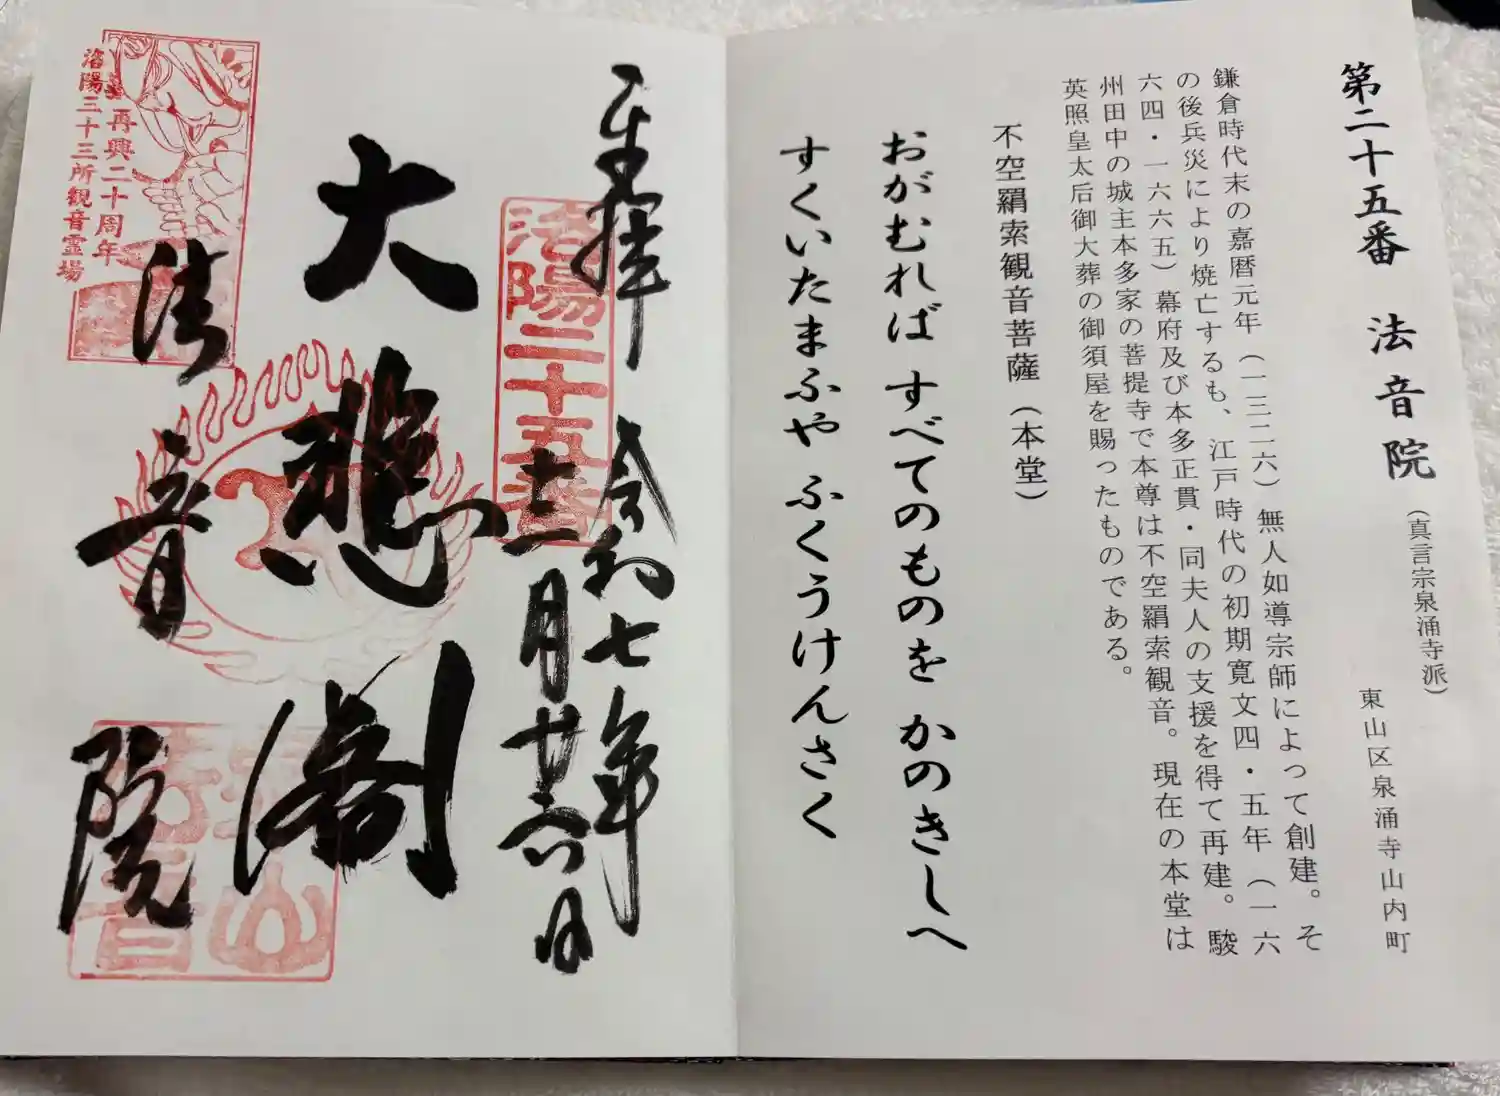 第二十五番 法音院
(真言宗泉涌寺派)
東山区泉涌寺山内町
鎌倉時代末の嘉暦元年(一三二六)無人如導宗師によって創建。そ
の後兵災により焼亡するも、江戸時代の初期寛文四・五年(一六
六四・一六六五)幕府及び本多正貫・同夫人の支援を得て再建。駿
州田中の城主本多家の菩提寺で本尊は不空羂索観音。現在の本堂は
英照皇太后御大葬の御須屋を賜ったものである。
不空羂索観音菩薩(本堂)
おがむれば すべてのものを かのきしへ
すくいたまふや ふくうけんさく
奉拝 令和七年
十二月廿六日
洛陽二十五番
大悲閣
法音院
再興二十周年
洛陽三十三所観音霊場